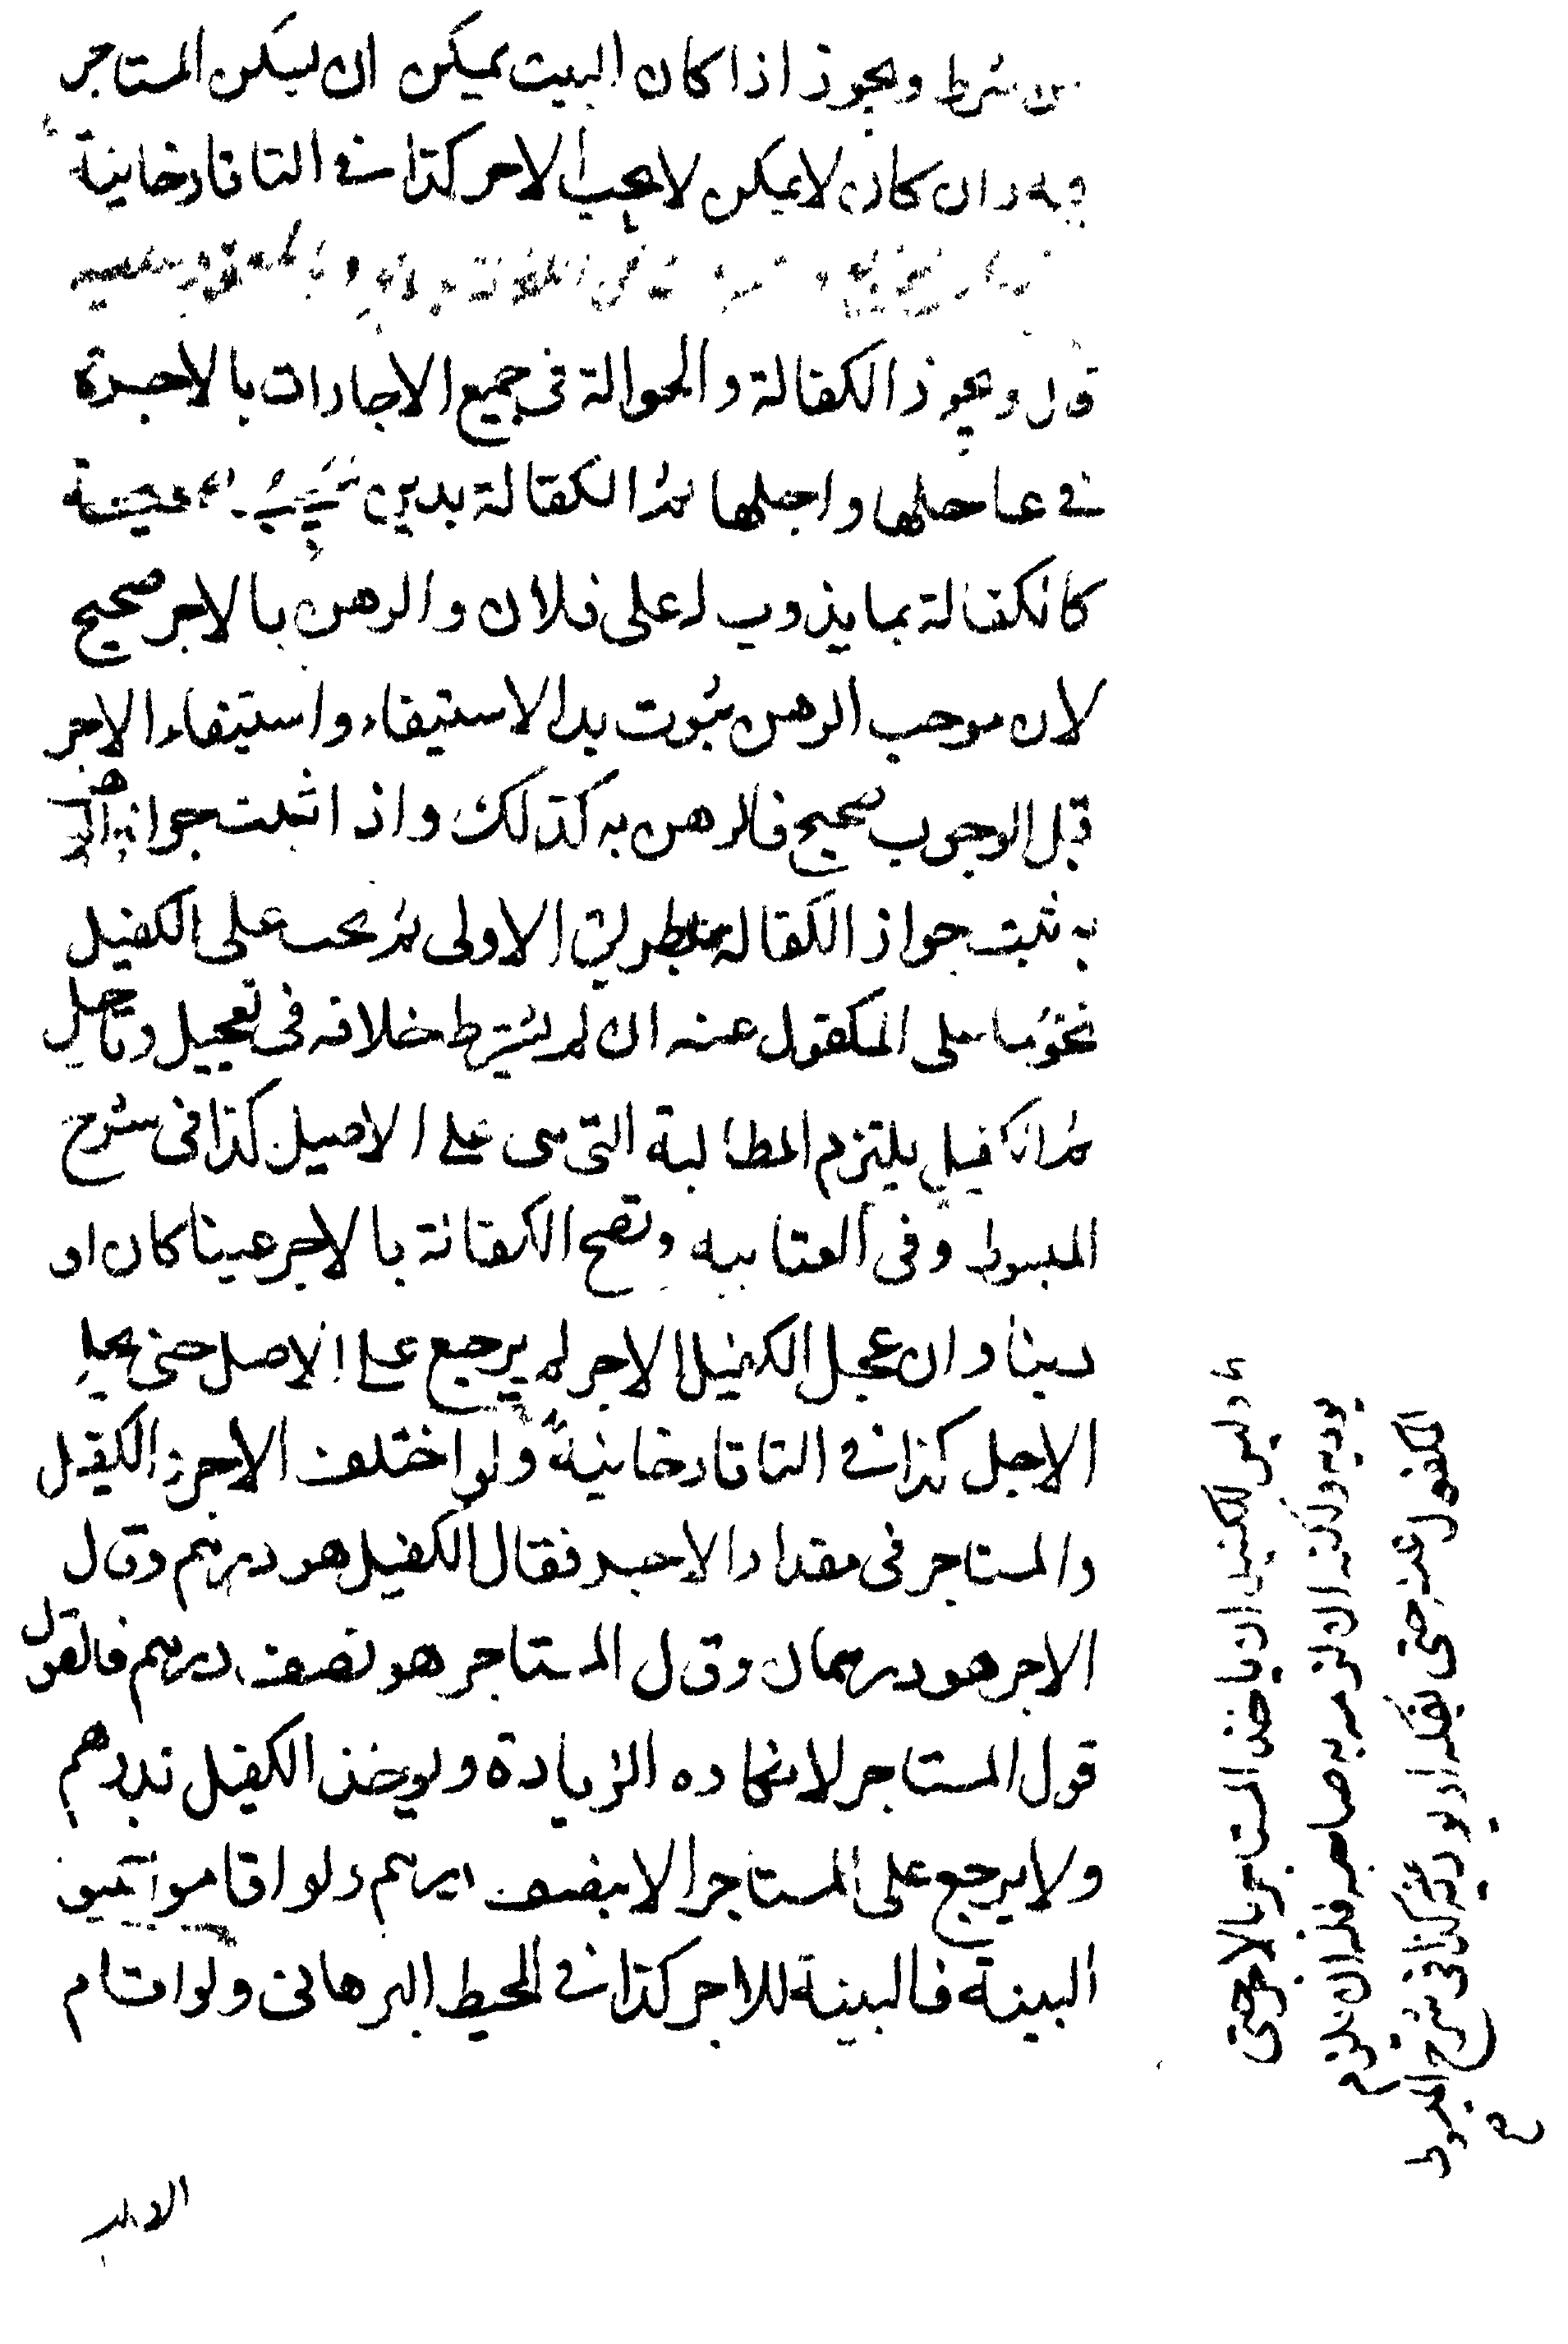 من شرط ويجوز اذا كان البيت يمكن ان يسكن المستاجر
فيه وان كان لا يمكن لا يجب الاجر كذا في التاتارخانية
قال ويجوز الكفالة والحوالة في جميع الاجارات بالاجرة
في عاجلها واجلها الكفالة بدين
كالكفالة بما يذوب له على فلان والرهن بالاجر صحيح
لان موجب الرهن ثبوت يد الاستيفاء واستيفاء الاجر
قبل الوجوب صحيح فالرهن به كذلك واذا ثبت جواز الرهن
به ثبت جواز الكفالة بطريق الاولى ثم يجب على الكفيل
نحو ما على المكفول عنه ان لم يشترط خلافه في تعجيل وتاجيل
الكفيل يلتزم المطالبة التي هي على الاصيل كذا في شرح
المبسوط وفي العتابيه وتصح الكفالة بالاجر عينا كان او
دينا وان عجل الكفيل الاجر لم يرجع على الاصل حتى يحل
الاجل كذا في التاتارخانية ولو اختلف الاجر والكفيل
والمستاجر في مقدار الاجر فقال الكفيل هو درهم وقال
الاجر هو درهمان وقال المستاجر هو نصف درهم فالقول
قول المستاجر لانكاره الزيادة ويوخذ الكفيل بدرهم
ولا يرجع على المستاجر الا بنصف درهم ولو اقاموا
البينة فالبينة للاجر كذا في المحيط البرهاني ولو اقام
وليس للكفيل ان ياخذ المستاجر بالاجر حتى
يوديه ولكنه ان لزمه به صاحبه فله ان يلزم
المكفول عنه حتى يفكه او يوديه كذا في شرح المبسوط